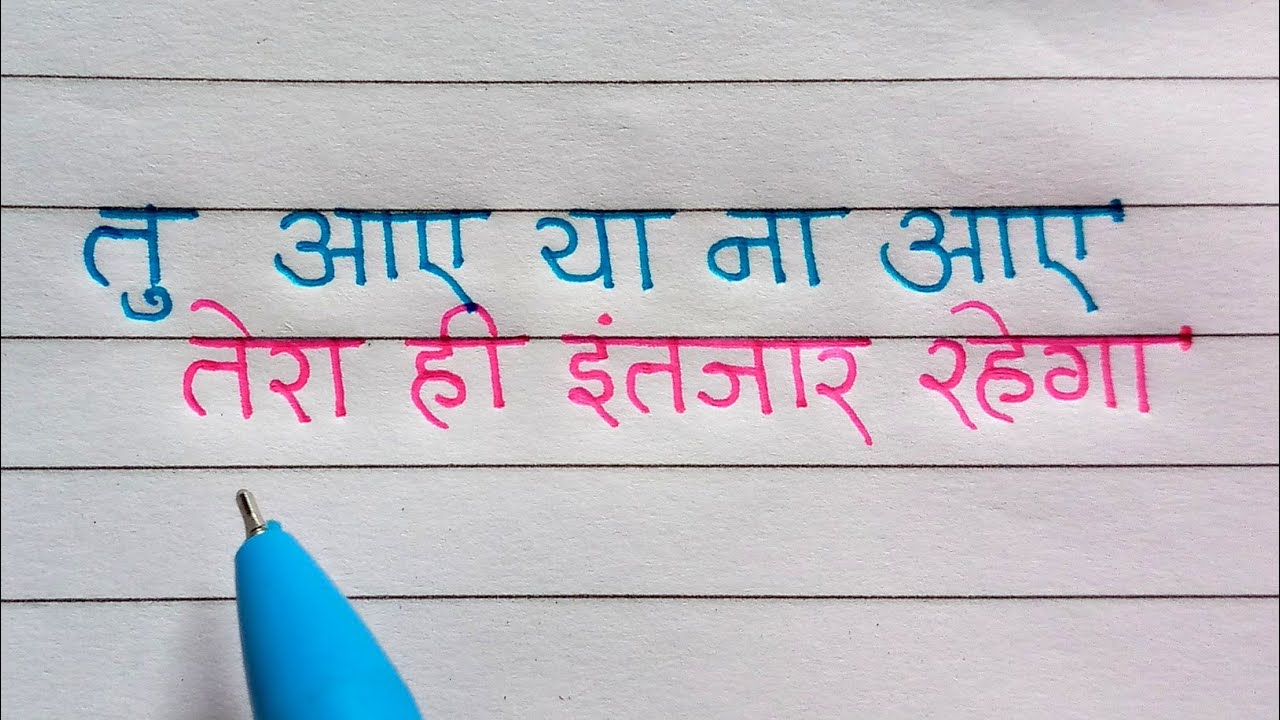 तु आए या ना आए
तेरा ही इंतजार रहेगा